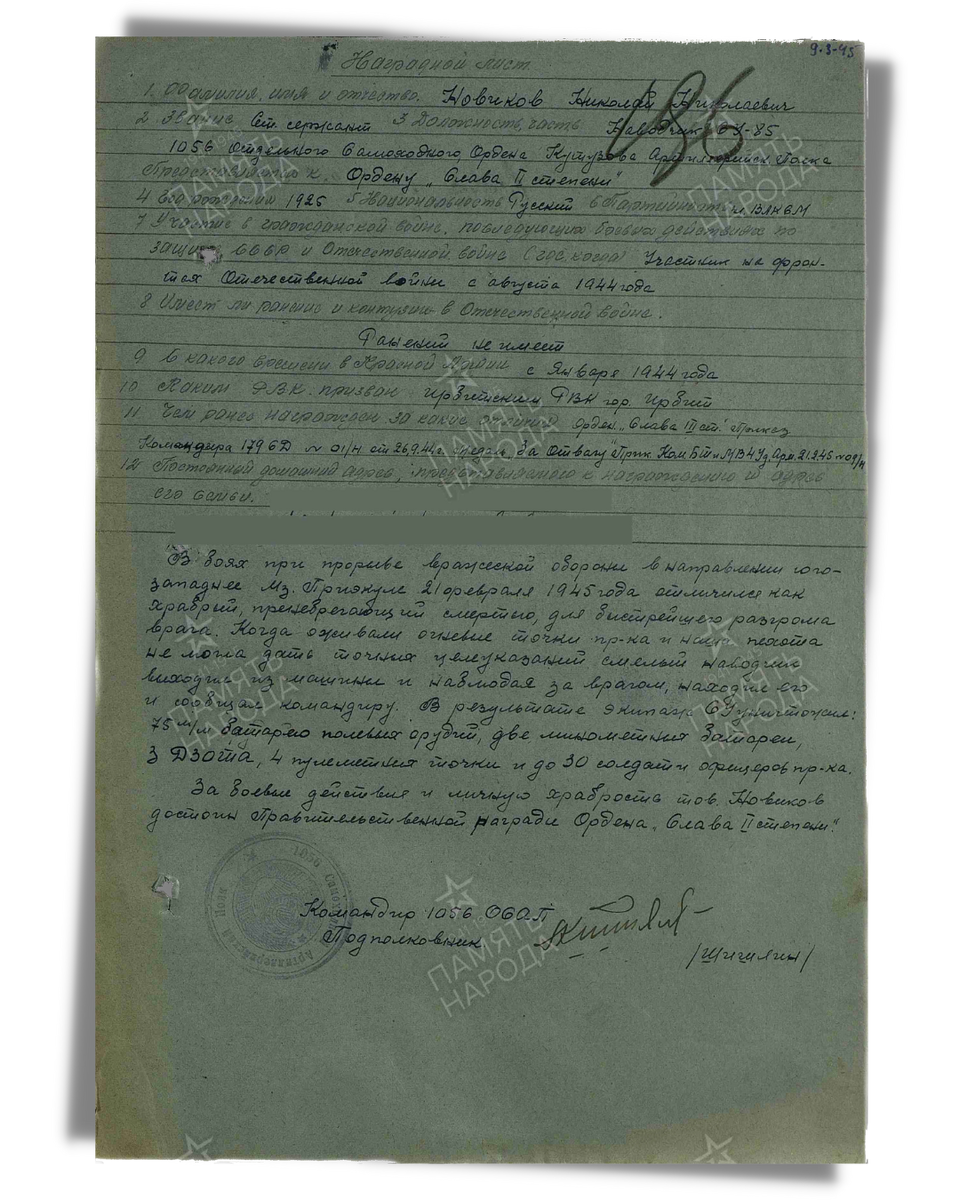 9.3-45
Наградной лист
186
1. Фамилия, имя и отчество. Новиков Николай Николаевич
2 Звание Ст. сержант 3 Должность, часть Наводчик СУ-85
1056 Отдельного Самоходного, Ордена Кутузова Артиллерийск. Полка
Представляется к Ордену „Слава II степени"
4 Год рождения 1925 5 Национальность Русский 6 Партийность чл. ВЛКСМ
7 Участие в гражданской войне, последующих боевых действиях по
защите СССР и Отечественной войне (где, когда) Участник на фрон-
тах Отечественной войны с августа 1944 года
8. Имеет ли ранение и контузии в Отечественной войне.
Ранений не имеет
9 С какого времени в Красной Армии с Января 1944 года
10 Каким РВК призван Ирбитским РВК гор. Ирбит
11. Чем ранее награжден за какие отличия Орден „Слава III ст." Приказ
Командира 179 СД № 01/н от 26.9.44г. Медаль „За Отвагу" Прик. Ком. БТ и МВ 4 Уд. Арм. 21.2.45 № 09/н
12 Постоянный домашний адрес, представляемого к награждению и адрес
его семьи.
В боях при прорыве вражеской обороны в направлении юго-
западнее Мз. Приэкуле 21 февраля 1945 года отличился как
храбрый, пренебрегающий смертью, для быстрейшего разгрома
врага. Когда оживали огневые точки пр-ка и наша пехота
не могла дать точных целеуказаний смелый наводчик
выходил из машины и наблюдая за врагом, находил его
и сообщал командиру. В результате экипаж СУ уничтожил:
75 м/м батарею полевых орудий, две минометных батареи,
3 Дзота, 4 пулеметных точки и до 30 солдат и офицеров пр-ка.
За боевые действия и личную храбрость тов. Новиков
достоин Правительственной награды Ордена „Слава II степени"
Командир 1056 ОСАП
Подполковник
/Шишлин/
1056 Самоходный Артиллерийский Полк
ПАМЯТЬ НАРОДА
ПАМЯТЬ НАРОДА
ПАМЯТЬ НАРОДА
ПАМЯТЬ НАРОДА
ПАМЯТЬ НАРОДА
ПАМЯТЬ НАРОДА